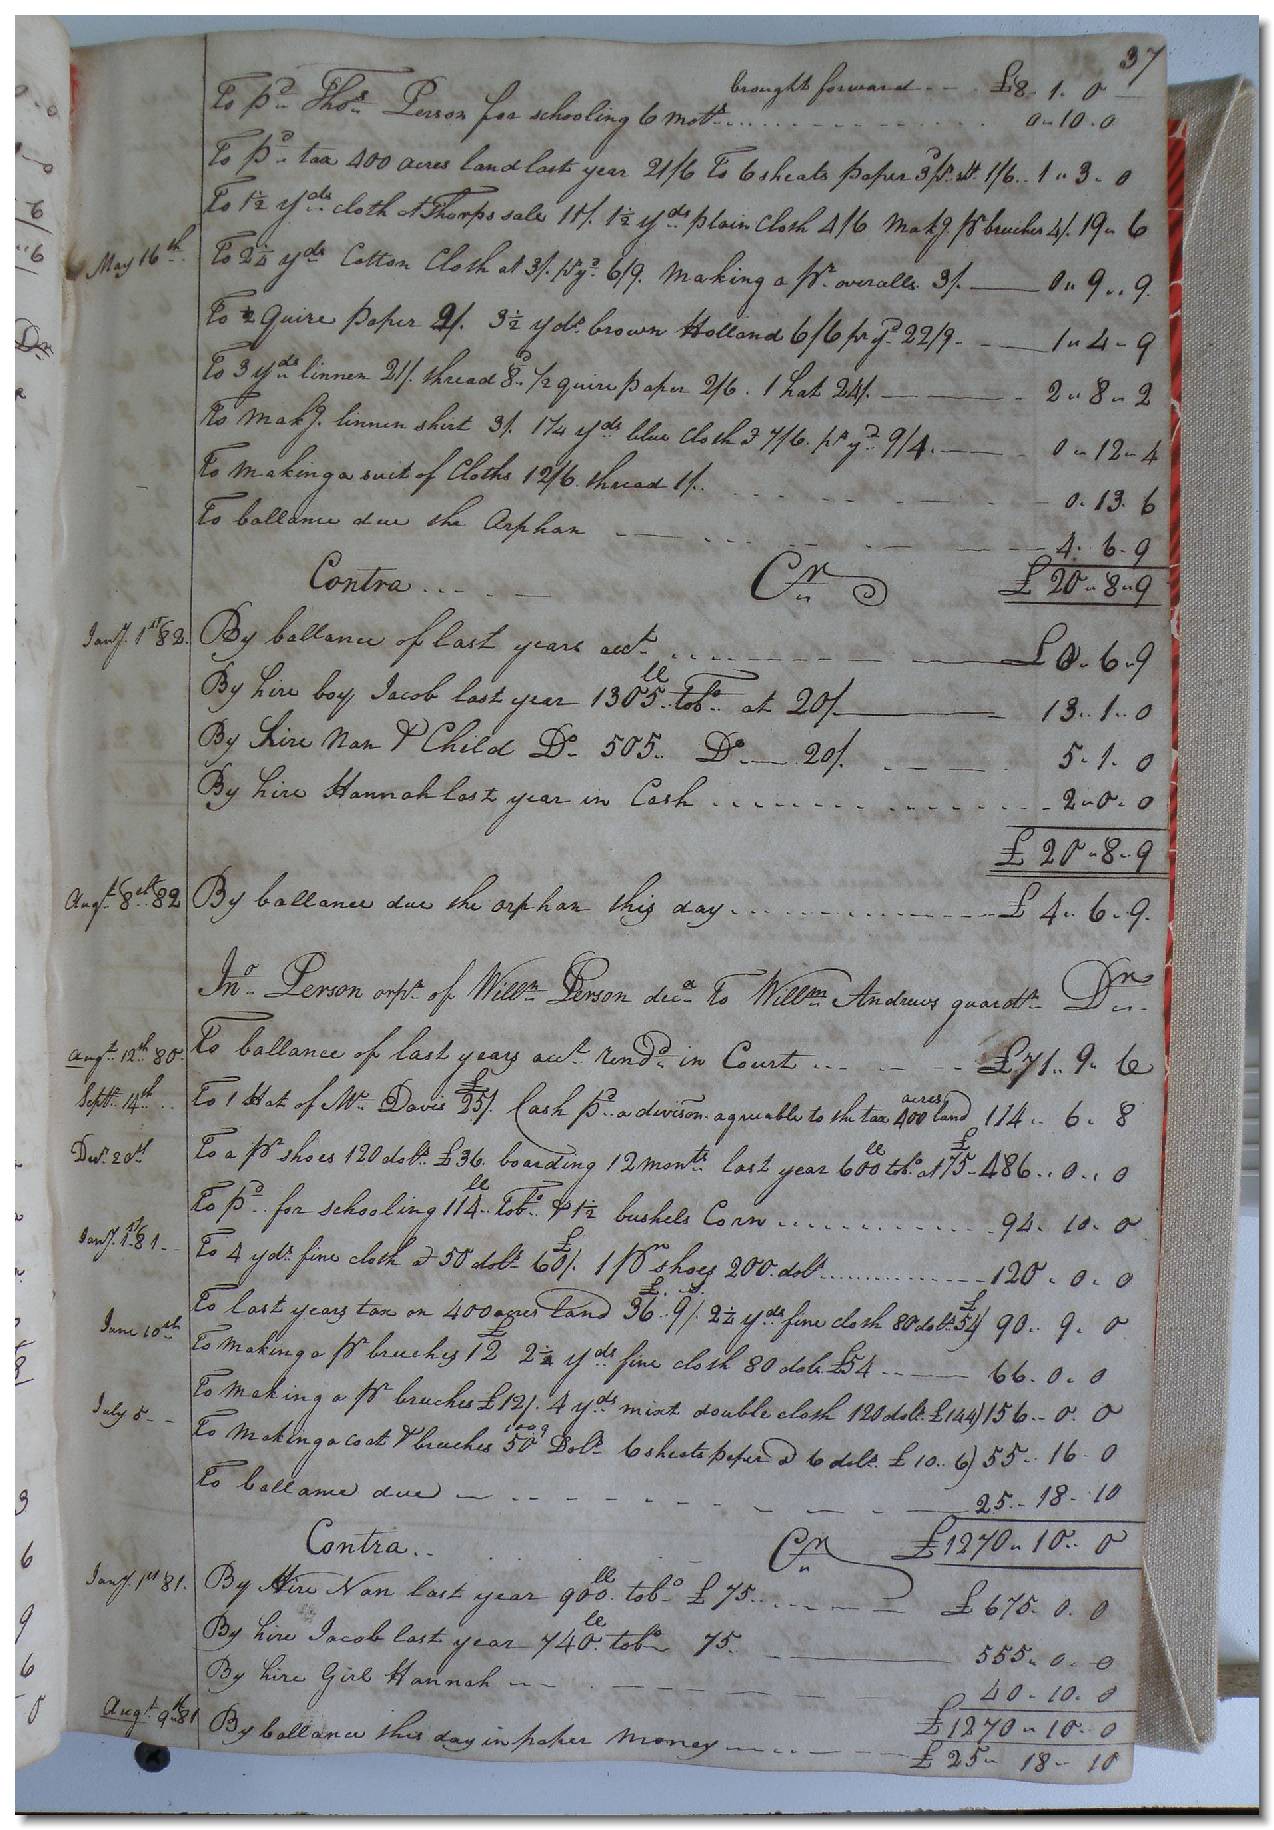 37
brought forward £8. 1. 0
To pd. Thos. Person for schooling 6 moths. 0. 10. 0
To pd. tax 400 acres land last year 21/6 To 6 sheats paper 3d pr. st. 1/6. 1 " 3. 0
To 1½ yds. cloth at Tharps sale 11/. 1½ yds plain Cloth 4/6 Makg. pr breeches 4/. 19 " 6
May 16th. To 2¼ yds Cotton Cloth at 3/. pr yd. 6/9. Making a pr. overalls 3/. 0 " 9 .. 9
To 2 Quire paper 2/. 3½ yds. brown Holland 6/6 pr yd. 22/9. 1 " 4 " 9
To 3 yds linnen 21/. thread 8d. ½ quire paper 2/6. 1 hat 24/. 2 " 8 " 2
To Makg. linnen shirt 3/. 1¼ yds blue cloth @ 7/6. pr yd 9/4. 0 " 12 " 4
To making a suit of Cloths 12/6. thread 1/. 0. 13. 6
To ballance due the Orphan 4. 6. 9
Contra Cr £ 20 " 8 " 9
Jany. 1st 82. By ballance of last years acct. £0. 6. 9
By hire boy Jacob last year 1305 ll tobo. at 20/. 13. 1. 0
By hire Nan & Child Do. 505. Do. 20/. 5. 1. 0
By hire Hannah last year in Cash 2. 0. 0
£ 20 " 8 " 9
Augt. 8th 82 By ballance due the orphan this day £ 4. 6. 9.
Jno. Person orpn. of Willm. Person decd. To Willm. Andrews guardn. Dr
Augt. 12th 80. To ballance of last years acct. rendd. in Court £71. 9. 6
Septr. 14th To 1 Hat of Mr. Davis £25/. Cash pd. a divison agreable to the tax 400 acres land 114. 6. 8
Decr. 20th To a pr shoes 120 dolrs. £36. boarding 12 months last year 600 ll tobo. at £75 486. 0. 0
To pd. for schooling 114 ll Tobo. & 1½ bushels Corn 94. 10. 0
Jany. 1st 81. To 4 yds. fine cloth @ 50 dolrs. £60/. 1 pr shoes 200. dolrs. 120. 0. 0
To last years tax on 400 acres land £36. 9/. 2¼ yds. fine cloth 80 dolrs. £54) 90. 9. 0
June 10th To making a pr breeches £12 2¼ yds fine cloth 80 dolrs. £54 66. 0. 0
To Making a pr breeches £12/. 4 yds mixt double cloth 120 dolrs. £144) 156. 0. 0
July 5 To making a coat & breeches 50 Dolrs. 6 sheats paper @ 6 dolrs. £ 10. 6) 55. 16. 0
To ballance due 25. 18. 10
Contra Cr £1270 " 10. 0
Jany. 1st 81. By Hire Nan last year 900 ll. tobo. £75. £675. 0. 0
By hire Jacob last year 740 ll. tobo. 75. 555. 0. 0
By hire Girl Hannah 40. 10. 0
£1270 " 10. 0
Augt. 9th 81 By ballance this day in paper money £ 25. 18. 10